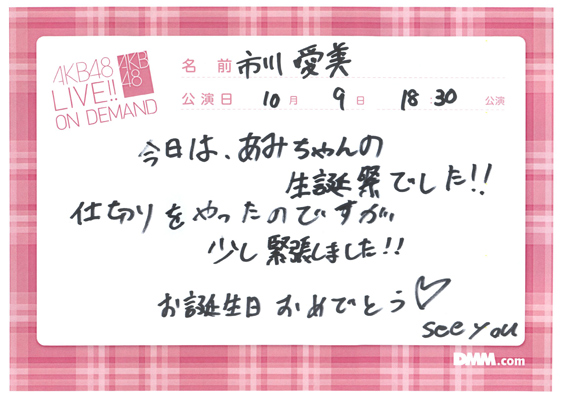 AKB48
LIVE!!
ON DEMAND
AKB
48
名 前 市川 愛美
公演日 10月 9日 18:30 公演
今日は、あみちゃんの
生誕祭でした!!
仕切りをやったのですが
少し緊張しました!!
お誕生日おめでとう♡
see you
DMM.com